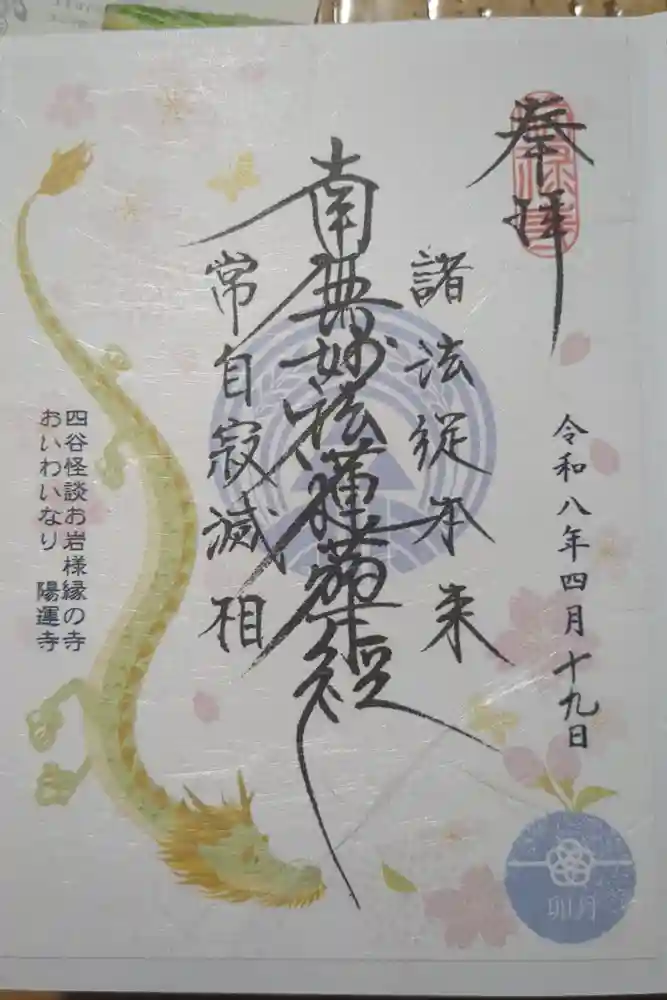 奉拝
令和八年四月十九日
諸法従本来
南無妙法蓮華経
常自寂滅相
四谷怪談お岩様縁の寺
おいわいなり 陽運寺
卯月